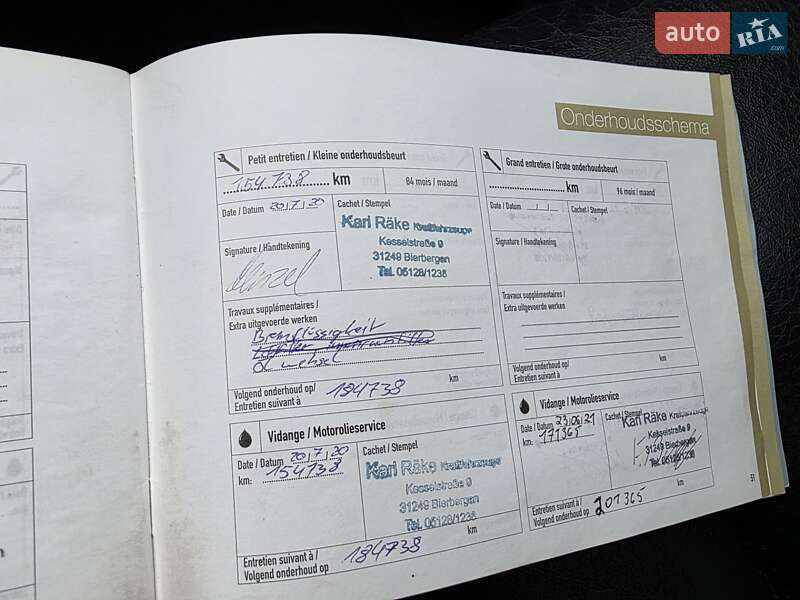 auto RIA.com
Onderhoudsschema
Petit entretien / Kleine onderhoudsbeurt
154738 km
84 mois / maand
Date / Datum 20/7/20
Cachet / Stempel
Karl Räke Kraftfahrzeuge
Kesselstraße 9
31249 Bierbergen
Tel. 05128/1236
Signature / Handtekening
Travaux supplémentaires /
Extra uitgevoerde werken
Bremsflüssigkeit
Volgend onderhoud op/
Entretien suivant à
184738 km
Grand entretien / Grote onderhoudsbeurt
km
96 mois / maand
Date / Datum / /
Cachet / Stempel
Signature / Handtekening
Travaux supplémentaires /
Extra uitgevoerde werken
Volgend onderhoud op/
Entretien suivant à
km
Vidange / Motorolieservice
Date / Datum 20/7/20
km: 154738
Cachet / Stempel
Karl Räke Kraftfahrzeuge
Kesselstraße 9
31249 Bierbergen
Tel. 05128/1236
Entretien suivant à /
Volgend onderhoud op
184738 km
Vidange / Motorolieservice
Date / Datum 23/06/21
km: 171365
Cachet / Stempel
Karl Räke Kraftfahrzeuge
Kesselstraße 9
31249 Bierbergen
Tel. 05128/1236
Entretien suivant à /
Volgend onderhoud op
201365 km
51